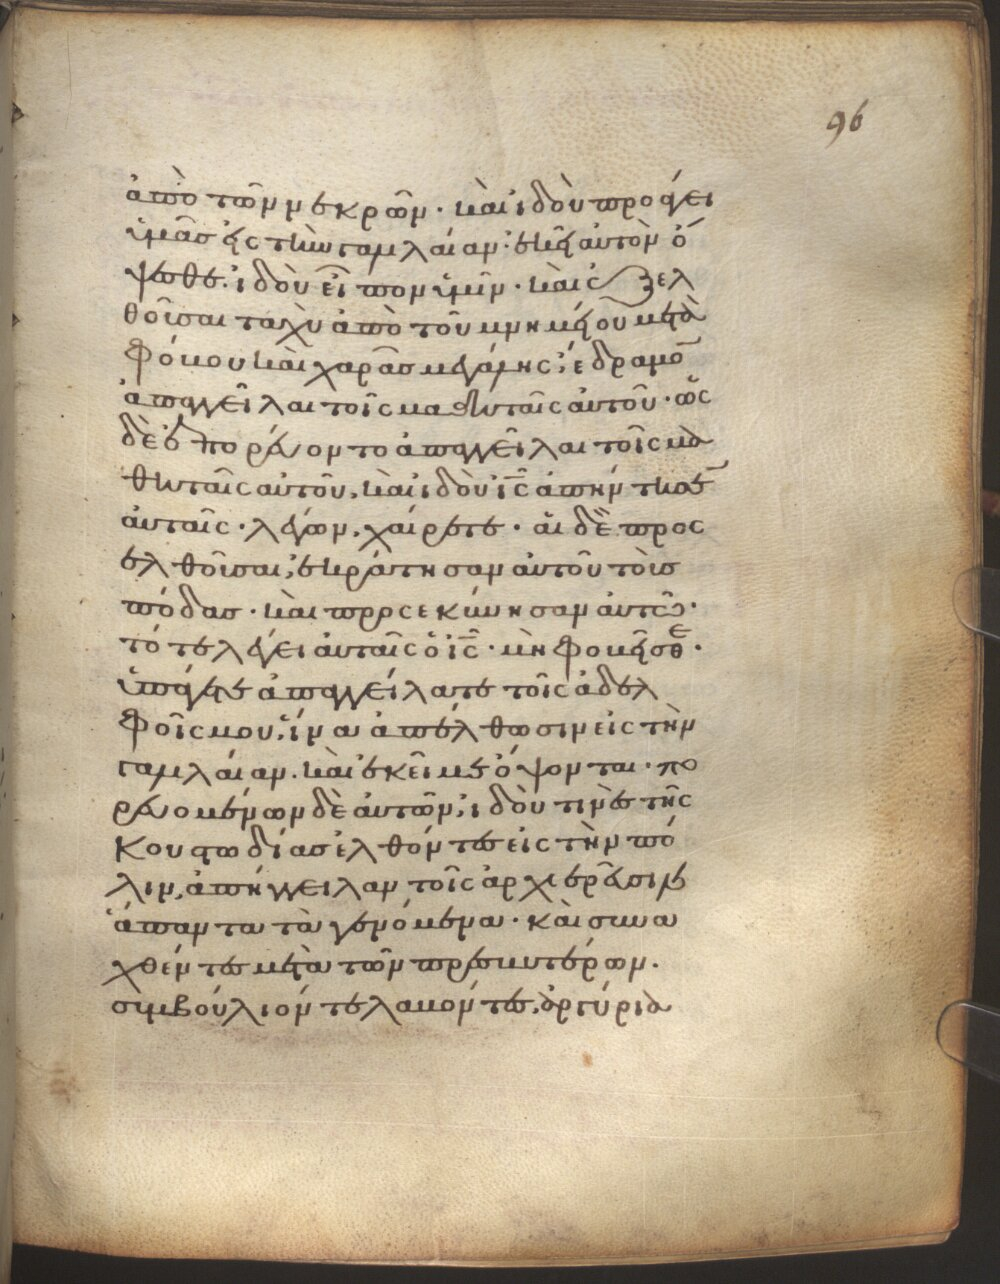 96
ἀπὸ τῶν νεκρῶν· καὶ ἰδοὺ προάγει
ὑμᾶσ εἰς τὴν γαλιλαίαν· ἐκεῖ αὐτὸν ὄ
ψεσθε. ἰδοὺ εἶπον ὑμῖν· καὶ ἐξελ
θοῦσαι ταχὺ ἀπὸ τοῦ μνημείου μετὰ
φόβου καὶ χαρᾶσ μεγάλης, ἔδραμο̅
ἀπαγγεῖλαι τοῖς μαθηταῖς αὐτοῦ· ὡς
δὲ ἐπορεύοντο ἀπαγγεῖλαι τοῖς μα
θηταῖς αὐτοῦ, καὶ ἰδοὺ ἰς̅ ἀπήντησε̅
αὐταῖς· λέγων, χαίρετε· αἱ δὲ προς
ελθοῦσαι, ἐκράτησαν αὐτοῦ τοὺσ
πόδασ· καὶ προςεκύνησαν αὐτῶ·
τότε λέγει αὐταῖς ὁ ἰς̅· μὴ φοβεῖσθε·
ὑπάγετε ἀπαγγείλατε τοῖς ἀδελ
φοῖς μου, ἵνα ἀπέλθωσιν εἰς τὴν
γαλιλαίαν. καὶ ἐκεῖ με ὄψονται· πο
ρευομένων δὲ αὐτῶν, ἰδού τινὲς τῆς
κουστωδίασ ἐλθόντες εἰς τὴν πό
λιν, ἀπήγγειλαν τοῖς ἀρχιερεῦσιν
ἅπαντα τὰ γενόμενα· καὶ συνα
χθέντες μετὰ τῶν πρεσβυτέρων.
συμβούλιόν τε λαβόντες, ἀργύρια